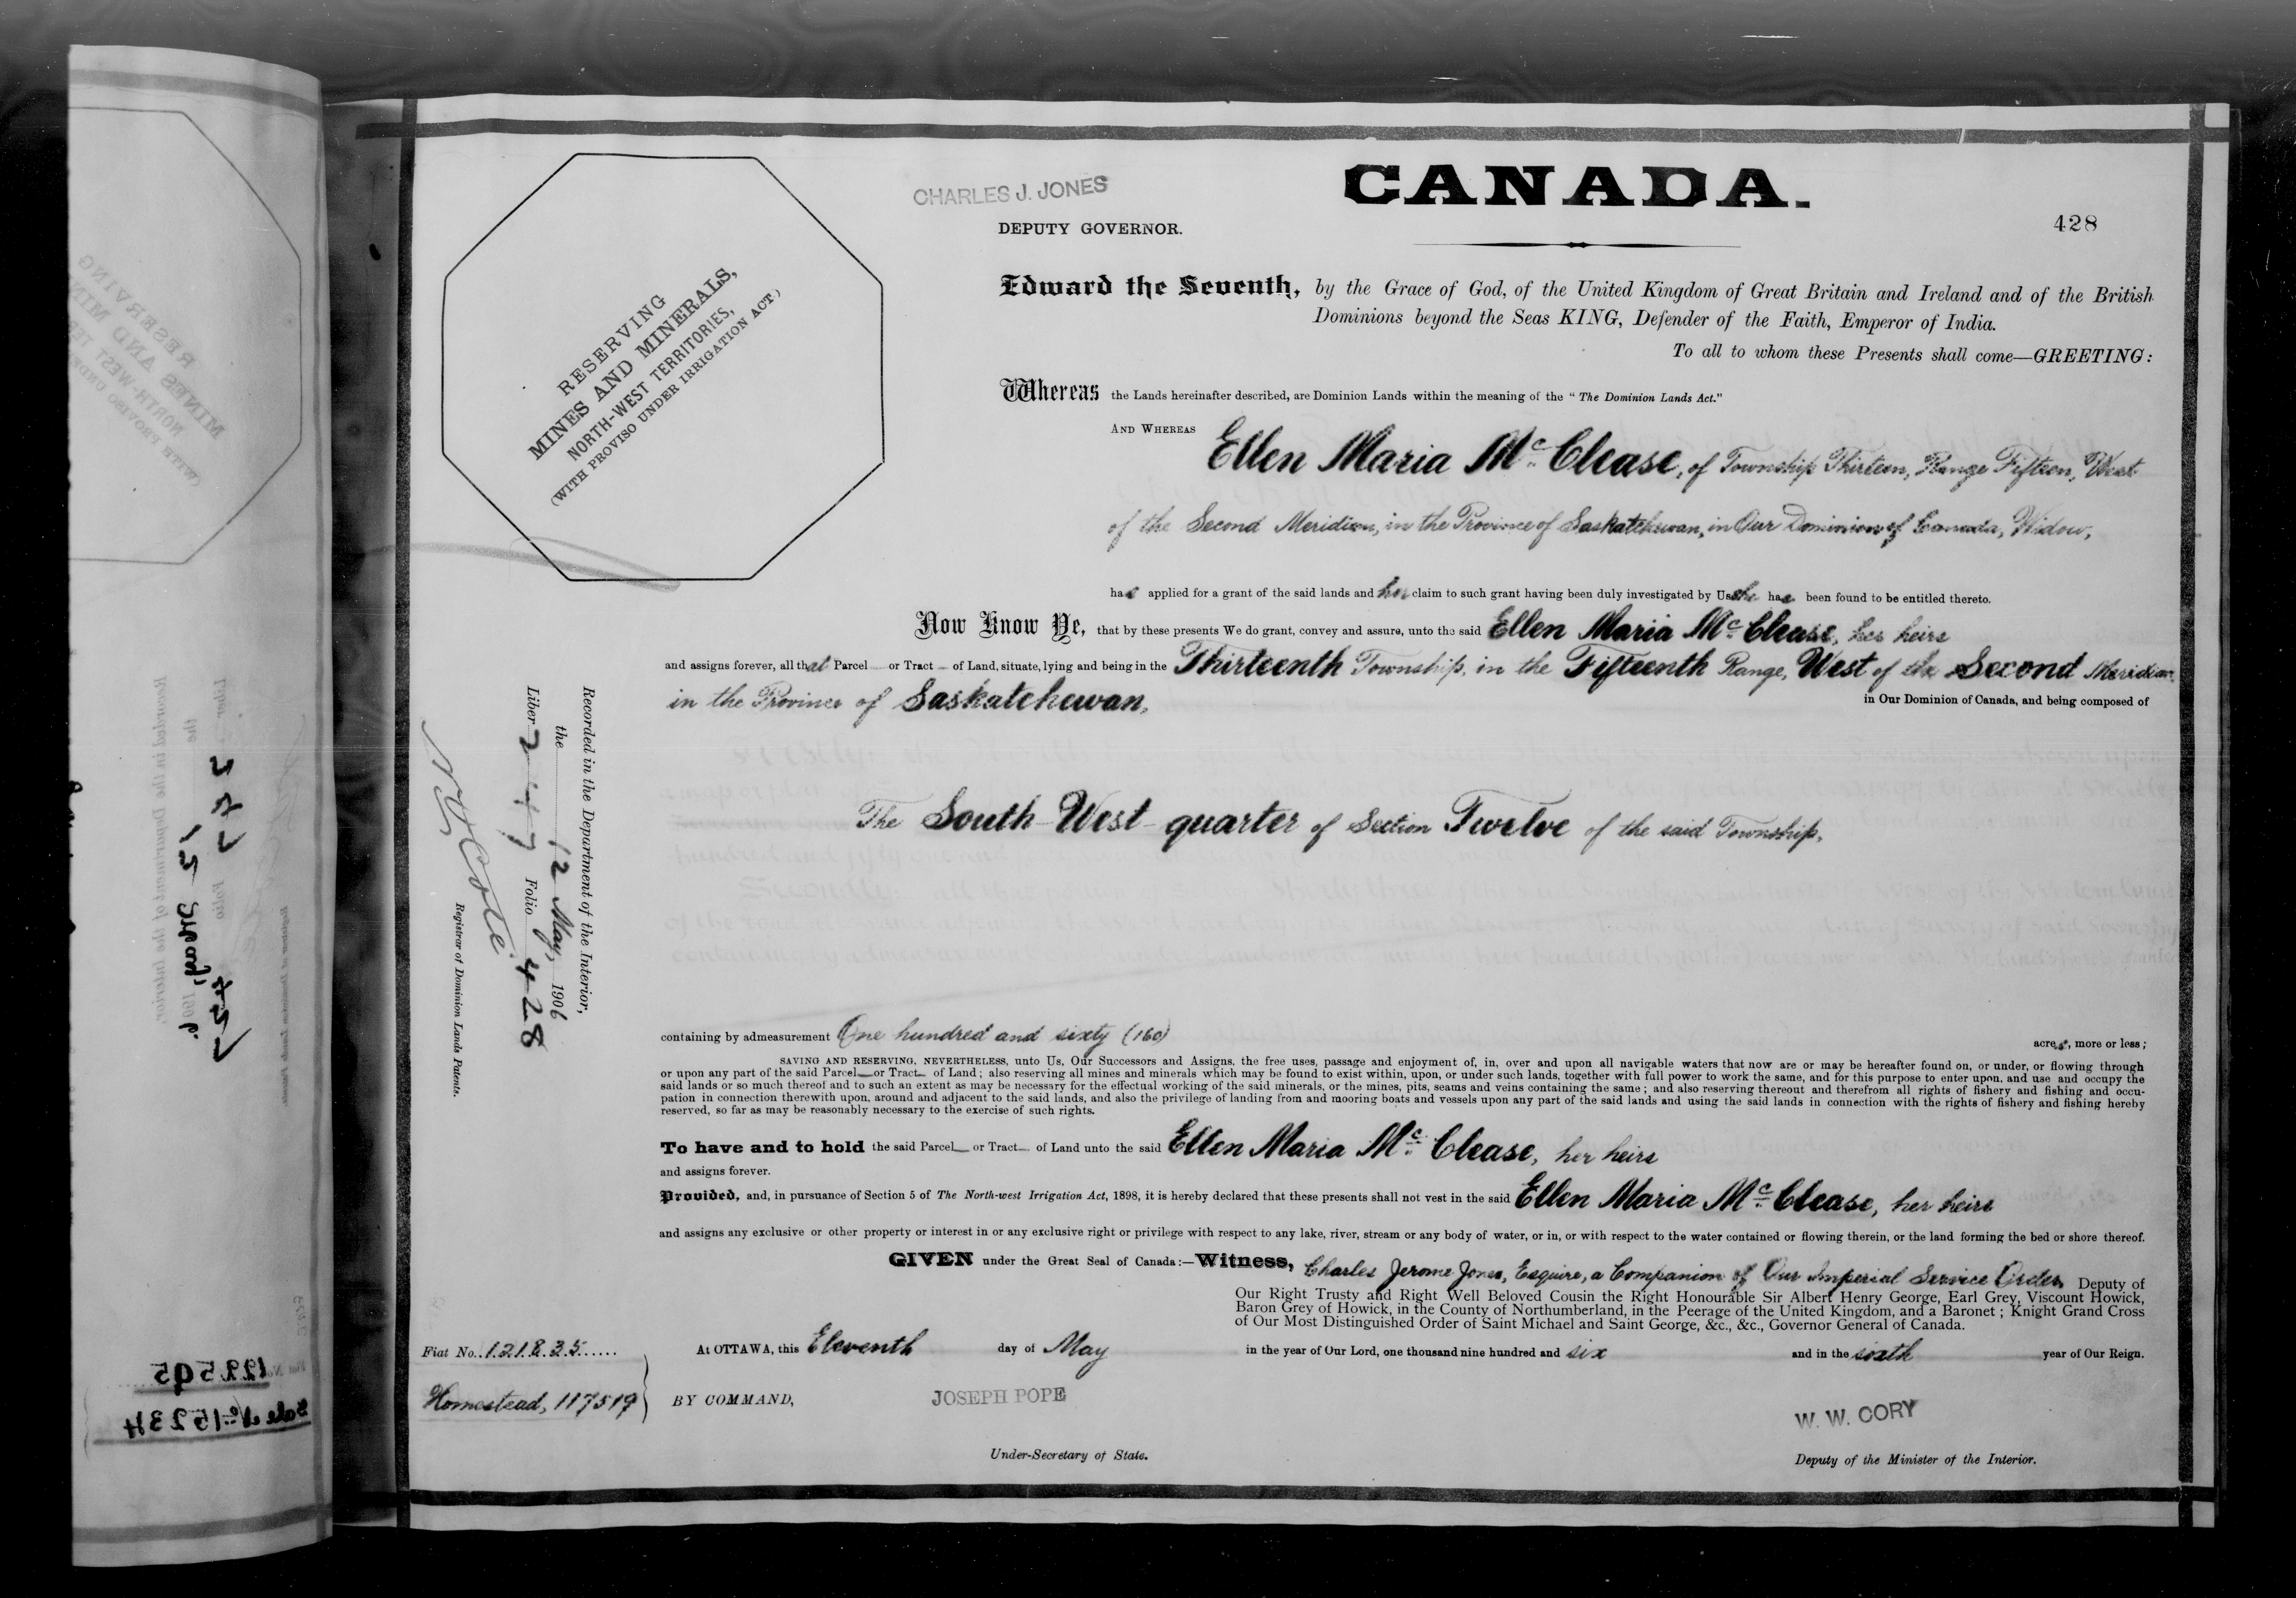 CHARLES J. JONES
DEPUTY GOVERNOR.
CANADA.
428
RESERVING
MINES AND MINERALS,
NORTH-WEST TERRITORIES,
(WITH PROVISO UNDER IRRIGATION ACT)
Edward the Seventh, by the Grace of God, of the United Kingdom of Great Britain and Ireland and of the British
Dominions beyond the Seas KING, Defender of the Faith, Emperor of India.
To all to whom these Presents shall come—GREETING:
Whereas the Lands hereinafter described, are Dominion Lands within the meaning of the "The Dominion Lands Act."
AND WHEREAS
Ellen Maria Mc. Clease, of Township Thirteen, Range Fifteen, West
of the Second Meridian, in the Province of Saskatchewan, in Our Dominion of Canada, Widow,
has applied for a grant of the said lands and her claim to such grant having been duly investigated by Us she has been found to be entitled thereto.
Now Know Ye, that by these presents We do grant, convey and assure, unto the said Ellen Maria Mc. Clease, her heirs
and assigns forever, all that Parcel or Tract of Land, situate, lying and being in the Thirteenth Township, in the Fifteenth Range, West of the Second Meridian,
in the Province of Saskatchewan,
in Our Dominion of Canada, and being composed of
The South-West-quarter of Section Twelve of the said Township.
Recorded in the Department of the Interior,
the 12 May, 1906
Liber 247 Folio 428
N. O. Coté
Registrar of Dominion Lands Patents.
containing by admeasurement One hundred and sixty (160) acres, more or less;
SAVING AND RESERVING, NEVERTHELESS, unto Us, Our Successors and Assigns, the free uses, passage and enjoyment of, in, over and upon all navigable waters that now are or may be hereafter found on, or under, or flowing through
or upon any part of the said Parcel or Tract of Land; also reserving all mines and minerals which may be found to exist within, upon, or under such lands, together with full power to work the same, and for this purpose to enter upon, and use and occupy the
said lands or so much thereof and to such an extent as may be necessary for the effectual working of the said minerals, or the mines, pits, seams and veins containing the same; and also reserving thereout and therefrom all rights of fishery and fishing and occu-
pation in connection therewith upon, around and adjacent to the said lands, and also the privilege of landing from and mooring boats and vessels upon any part of the said lands and using the said lands in connection with the rights of fishery and fishing hereby
reserved, so far as may be reasonably necessary to the exercise of such rights.
To have and to hold the said Parcel or Tract of Land unto the said Ellen Maria Mc. Clease, her heirs
and assigns forever.
Provided, and, in pursuance of Section 5 of The North-west Irrigation Act, 1898, it is hereby declared that these presents shall not vest in the said Ellen Maria Mc. Clease, her heirs
and assigns any exclusive or other property or interest in or any exclusive right or privilege with respect to any lake, river, stream or any body of water, or in, or with respect to the water contained or flowing therein, or the land forming the bed or shore thereof.
GIVEN under the Great Seal of Canada:—Witness, Charles Jerome Jones, Esquire, a Companion of Our Imperial Service Order, Deputy of
Our Right Trusty and Right Well Beloved Cousin the Right Honourable Sir Albert Henry George, Earl Grey, Viscount Howick,
Baron Grey of Howick, in the County of Northumberland, in the Peerage of the United Kingdom, and a Baronet; Knight Grand Cross
of Our Most Distinguished Order of Saint Michael and Saint George, &c., &c., Governor General of Canada.
Fiat No. 121835
At OTTAWA, this Eleventh day of May in the year of Our Lord, one thousand nine hundred and six and in the sixth year of Our Reign.
Homestead, 117519
BY COMMAND,
JOSEPH POPE
Under-Secretary of State.
W. W. CORY
Deputy of the Minister of the Interior.